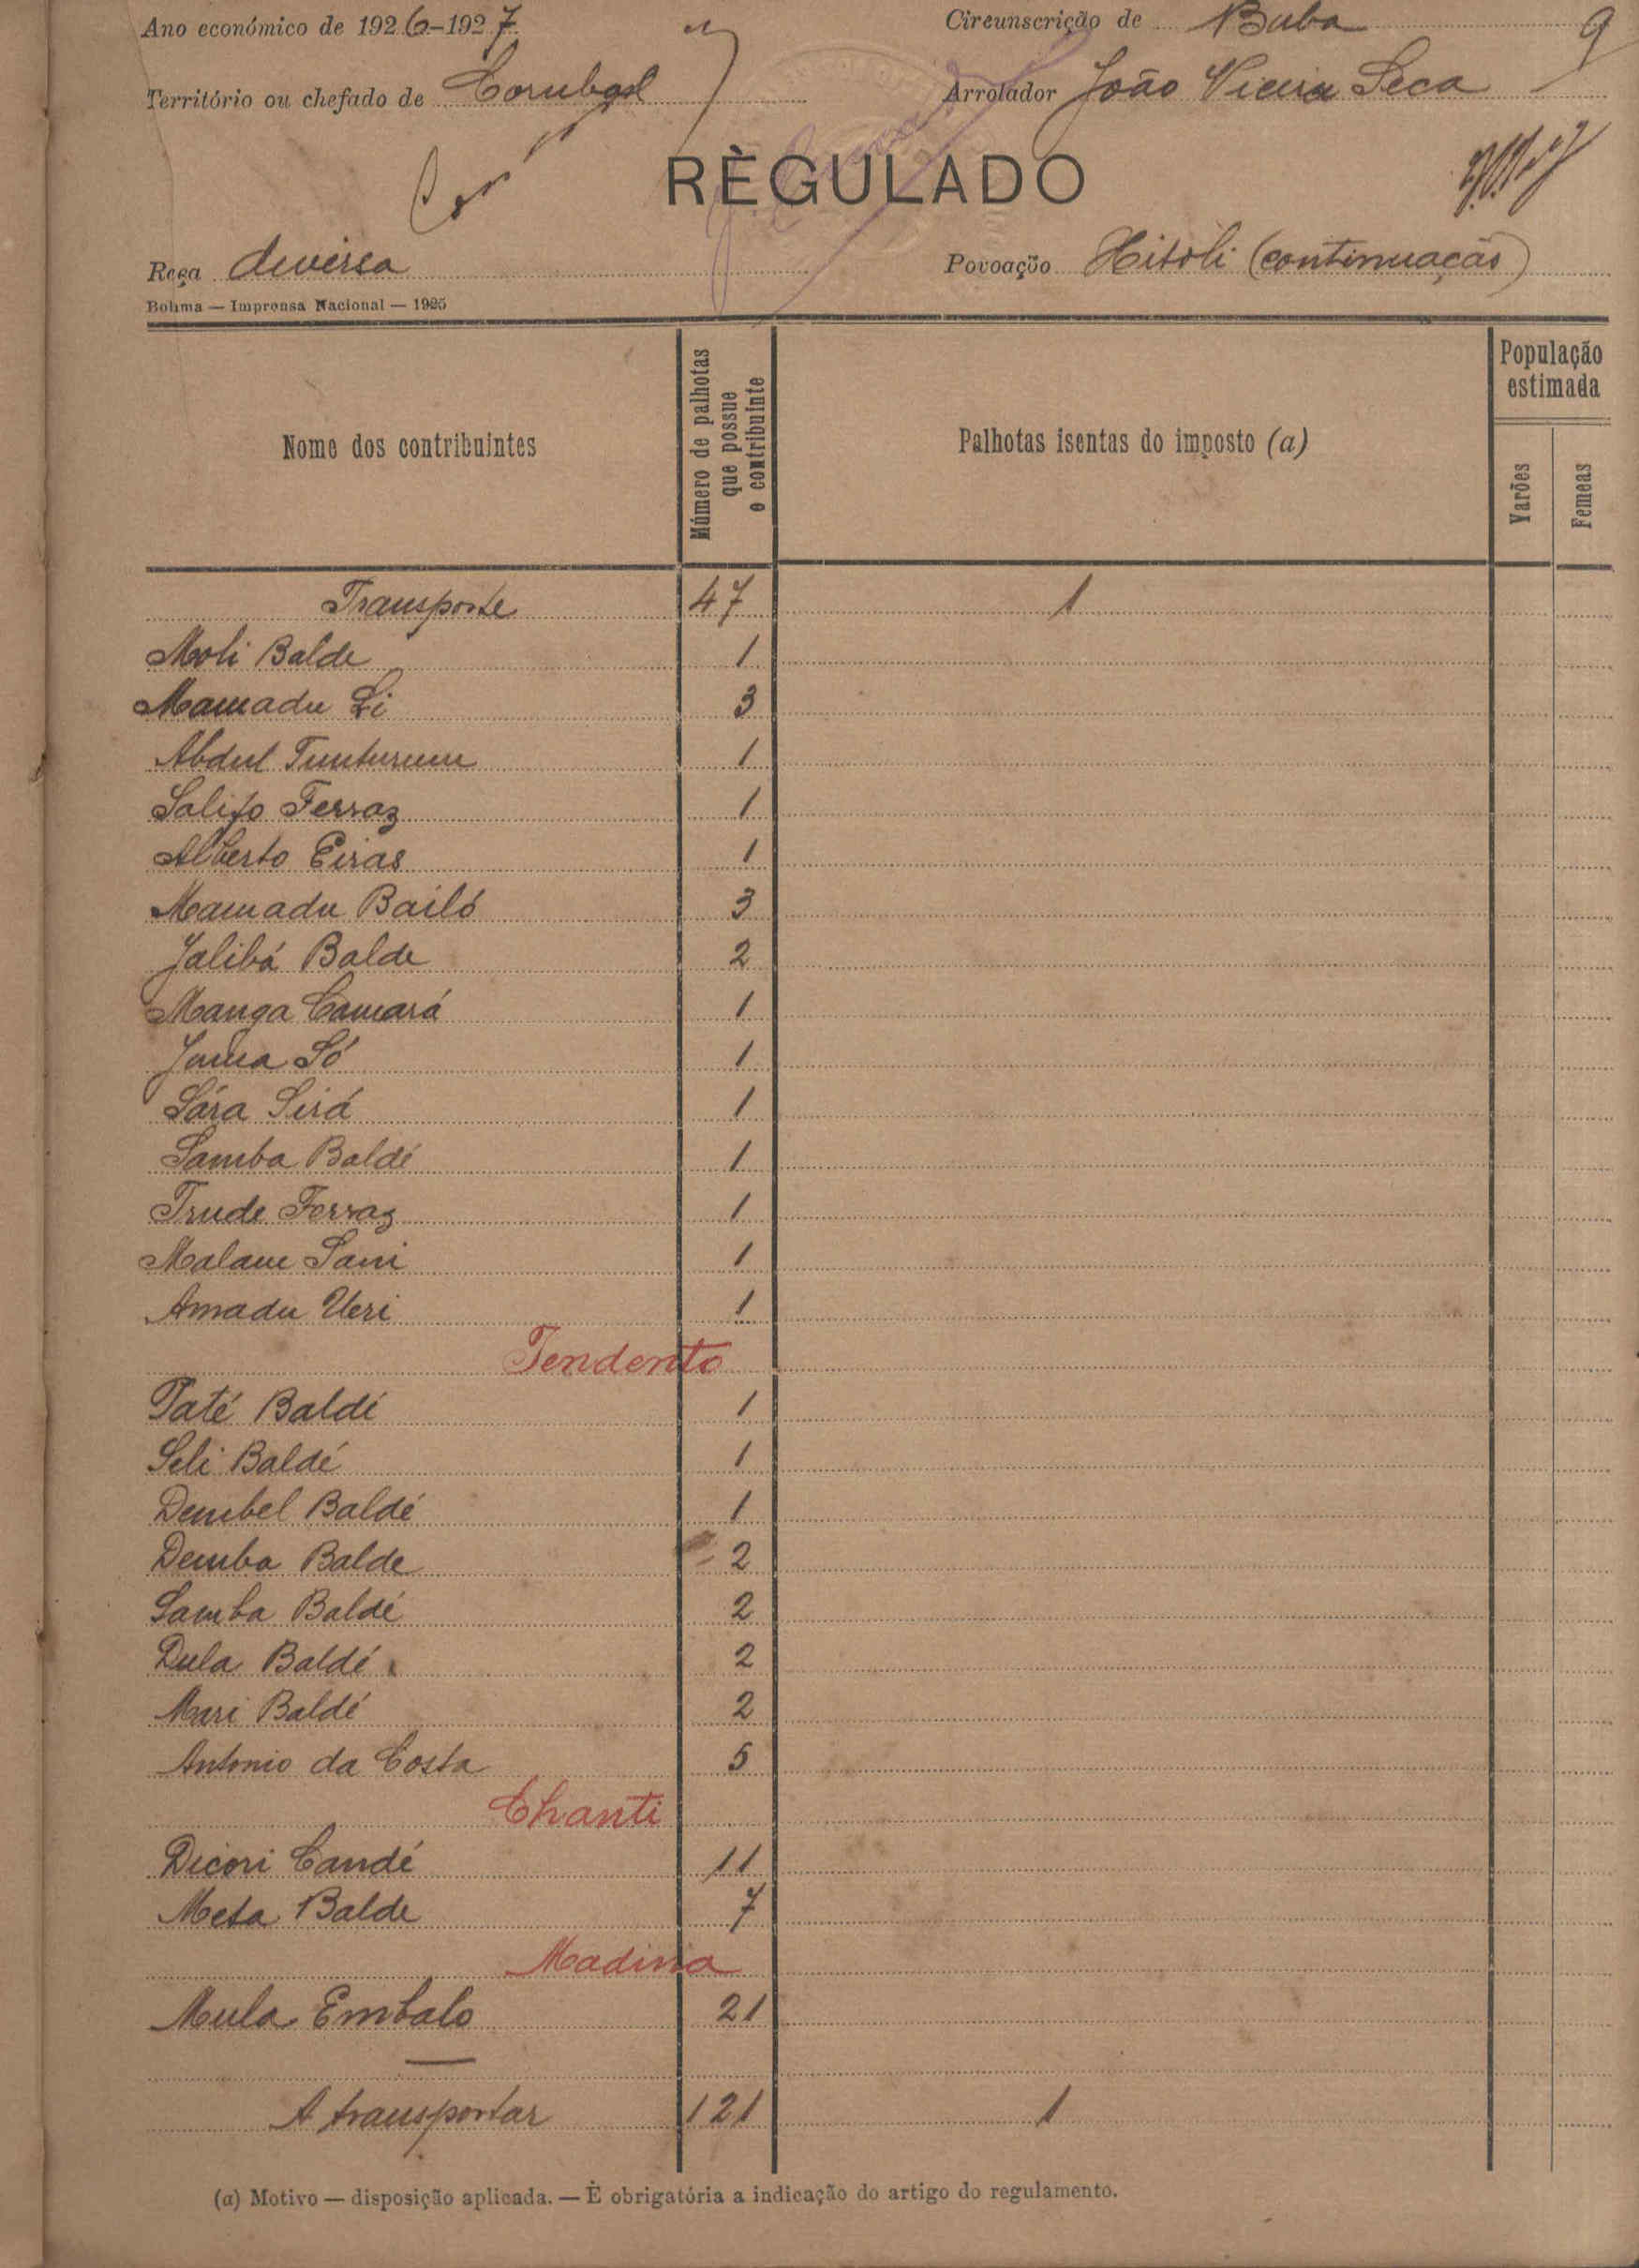 Ano económico de 1926-1927
Circunscrição de Buba
9
Território ou chefado de Corubal
Arrolador João Vieira Seca
RÈGULADO
Raça diversa
Povoação Hitoli (continuação)
Bolama — Imprensa Nacional — 1925
Nome dos contribuintes
Número de palhotas que possue o contribuinte
Palhotas isentas do imposto (a)
População estimada
Varões
Femeas
Transporte 47 1
Moli Balde 1
Mamadu Li 3
Abdul Tunturum 1
Salifo Ferraz 1
Alberto Eiras 1
Mamadu Bailó 3
Jalibá Balde 2
Manga Camará 1
Jama Só 1
Sára Sirá 1
Samba Baldé 1
Trude Ferraz 1
Malam Sani 1
Amadu Uri 1
Tendento
Paté Baldé 1
Seli Baldé 1
Dembel Baldé 1
Demba Balde 2
Samba Baldé 2
Dula Baldé 2
Mari Baldé 2
Antonio da Costa 5
Chanti
Dicori Candé 11
Meta Balde 7
Madina
Mula Embalo 21
A transportar 121 1
(a) Motivo — disposição aplicada. — È obrigatória a indicação do artigo do regulamento.